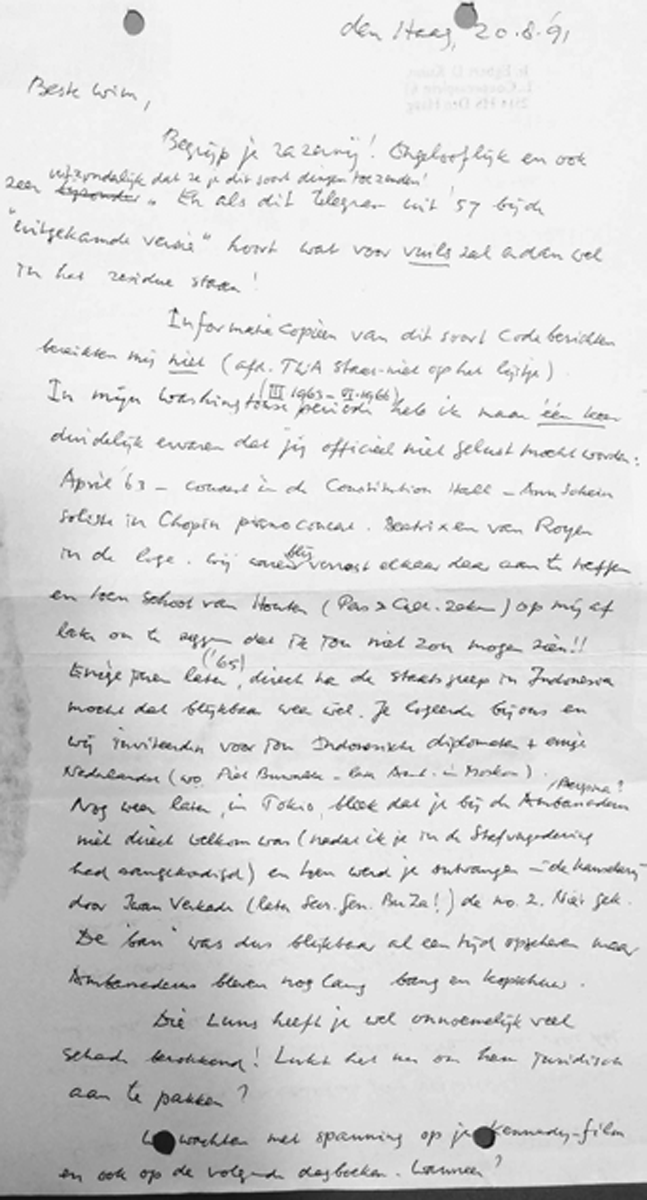 den Haag, 20.8.'91
Beste Wim,
Begrijp je razernij! Ongelooflijk en ook
uitzonderlijk dat ze je dit soort dingen toezenden!
zeer bijzonder. En als dit telegram uit '57 bij de
"uitgekamde versie" hoort wat voor vuils zal er dan wel
in het residue staan!
Informatie copieën van dit soort Code berichten
bereikten mij niet (afd. staat niet op het lijstje).
(III 1963 – VI-1966)
In mijn Washingtonse periode heb ik maar één keer
duidelijk ervaren dat jij officieel niet gelust mocht worden:
April '63 – concert in de Constitution Hall – Ann Schein
soliste in Chopin pianoconcert. Beatrix en van Royen
in de loge. Wij waren blij verrast elkaar daar aan te treffen
en toen schoot van Houten (Pers & Cult. zaken) op mij af
later om te zeggen dat ik jou niet zou mogen zien!!
Enige jaren later ('65), direct na de staatsgreep in Indonesia
mocht dat blijkbaar weer wel. Je logeerde bij ons en
wij inviteerden voor jou Indonesische diplomaten + enige
Nederlanders (wo. Piet - later Amb. in Moskou).
Nog weer later, in Tokio, bleek dat je bij de Ambassadeur
niet direct welkom was (nadat ik je in de Stafvergadering
had aangekondigd) en toen werd je ontvangen – de kanselarij –
door Iwan Verkade (later Secr. Gen. BuZa!) de no. 2. Niet gek.
De 'ban' was dus blijkbaar al een tijd opgeheven maar
Ambassadeurs bleven nog lang bang en kopschuw.
Die Luns heeft je wel onnoemelijk veel
schade berokkend! Lukt het nu om hem juridisch
aan te pakken?
We wachten met spanning op je Kennedy-film
en ook op de volgende dagboeken. Wanneer?